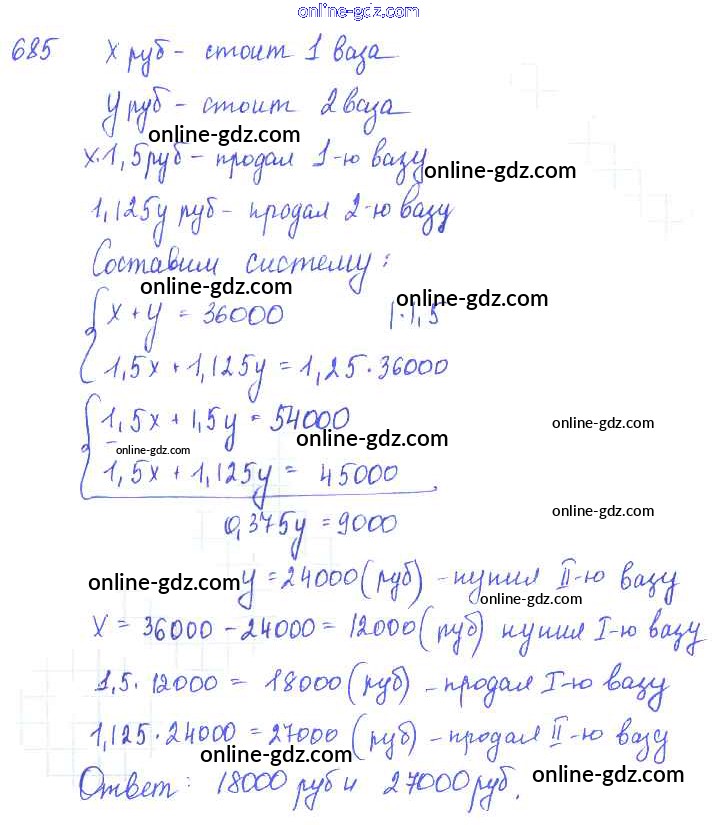 online-gdz.com
685 x руб - стоит 1 ваза
y руб - стоит 2 ваза
online-gdz.com
x·1,5 руб - продал 1-ю вазу
online-gdz.com
1,125y руб - продал 2-ю вазу
Составим систему:
online-gdz.com
online-gdz.com
x + y = 36000 |·1,5
1,5x + 1,125y = 1,25·36000
1,5x + 1,5y = 54000
online-gdz.com
online-gdz.com
online-gdz.com
- 
1,5x + 1,125y = 45000
online-gdz.com
0,375y = 9000
online-gdz.com
y = 24000 (руб) - купил II-ю вазу
online-gdz.com
x = 36000 - 24000 = 12000 (руб) купил I-ю вазу
1,5·12000 = 18000 (руб) - продал I-ю вазу
1,125·24000 = 27000 (руб) - продал II-ю вазу
online-gdz.com
online-gdz.com
Ответ: 18000 руб и 27000 руб.